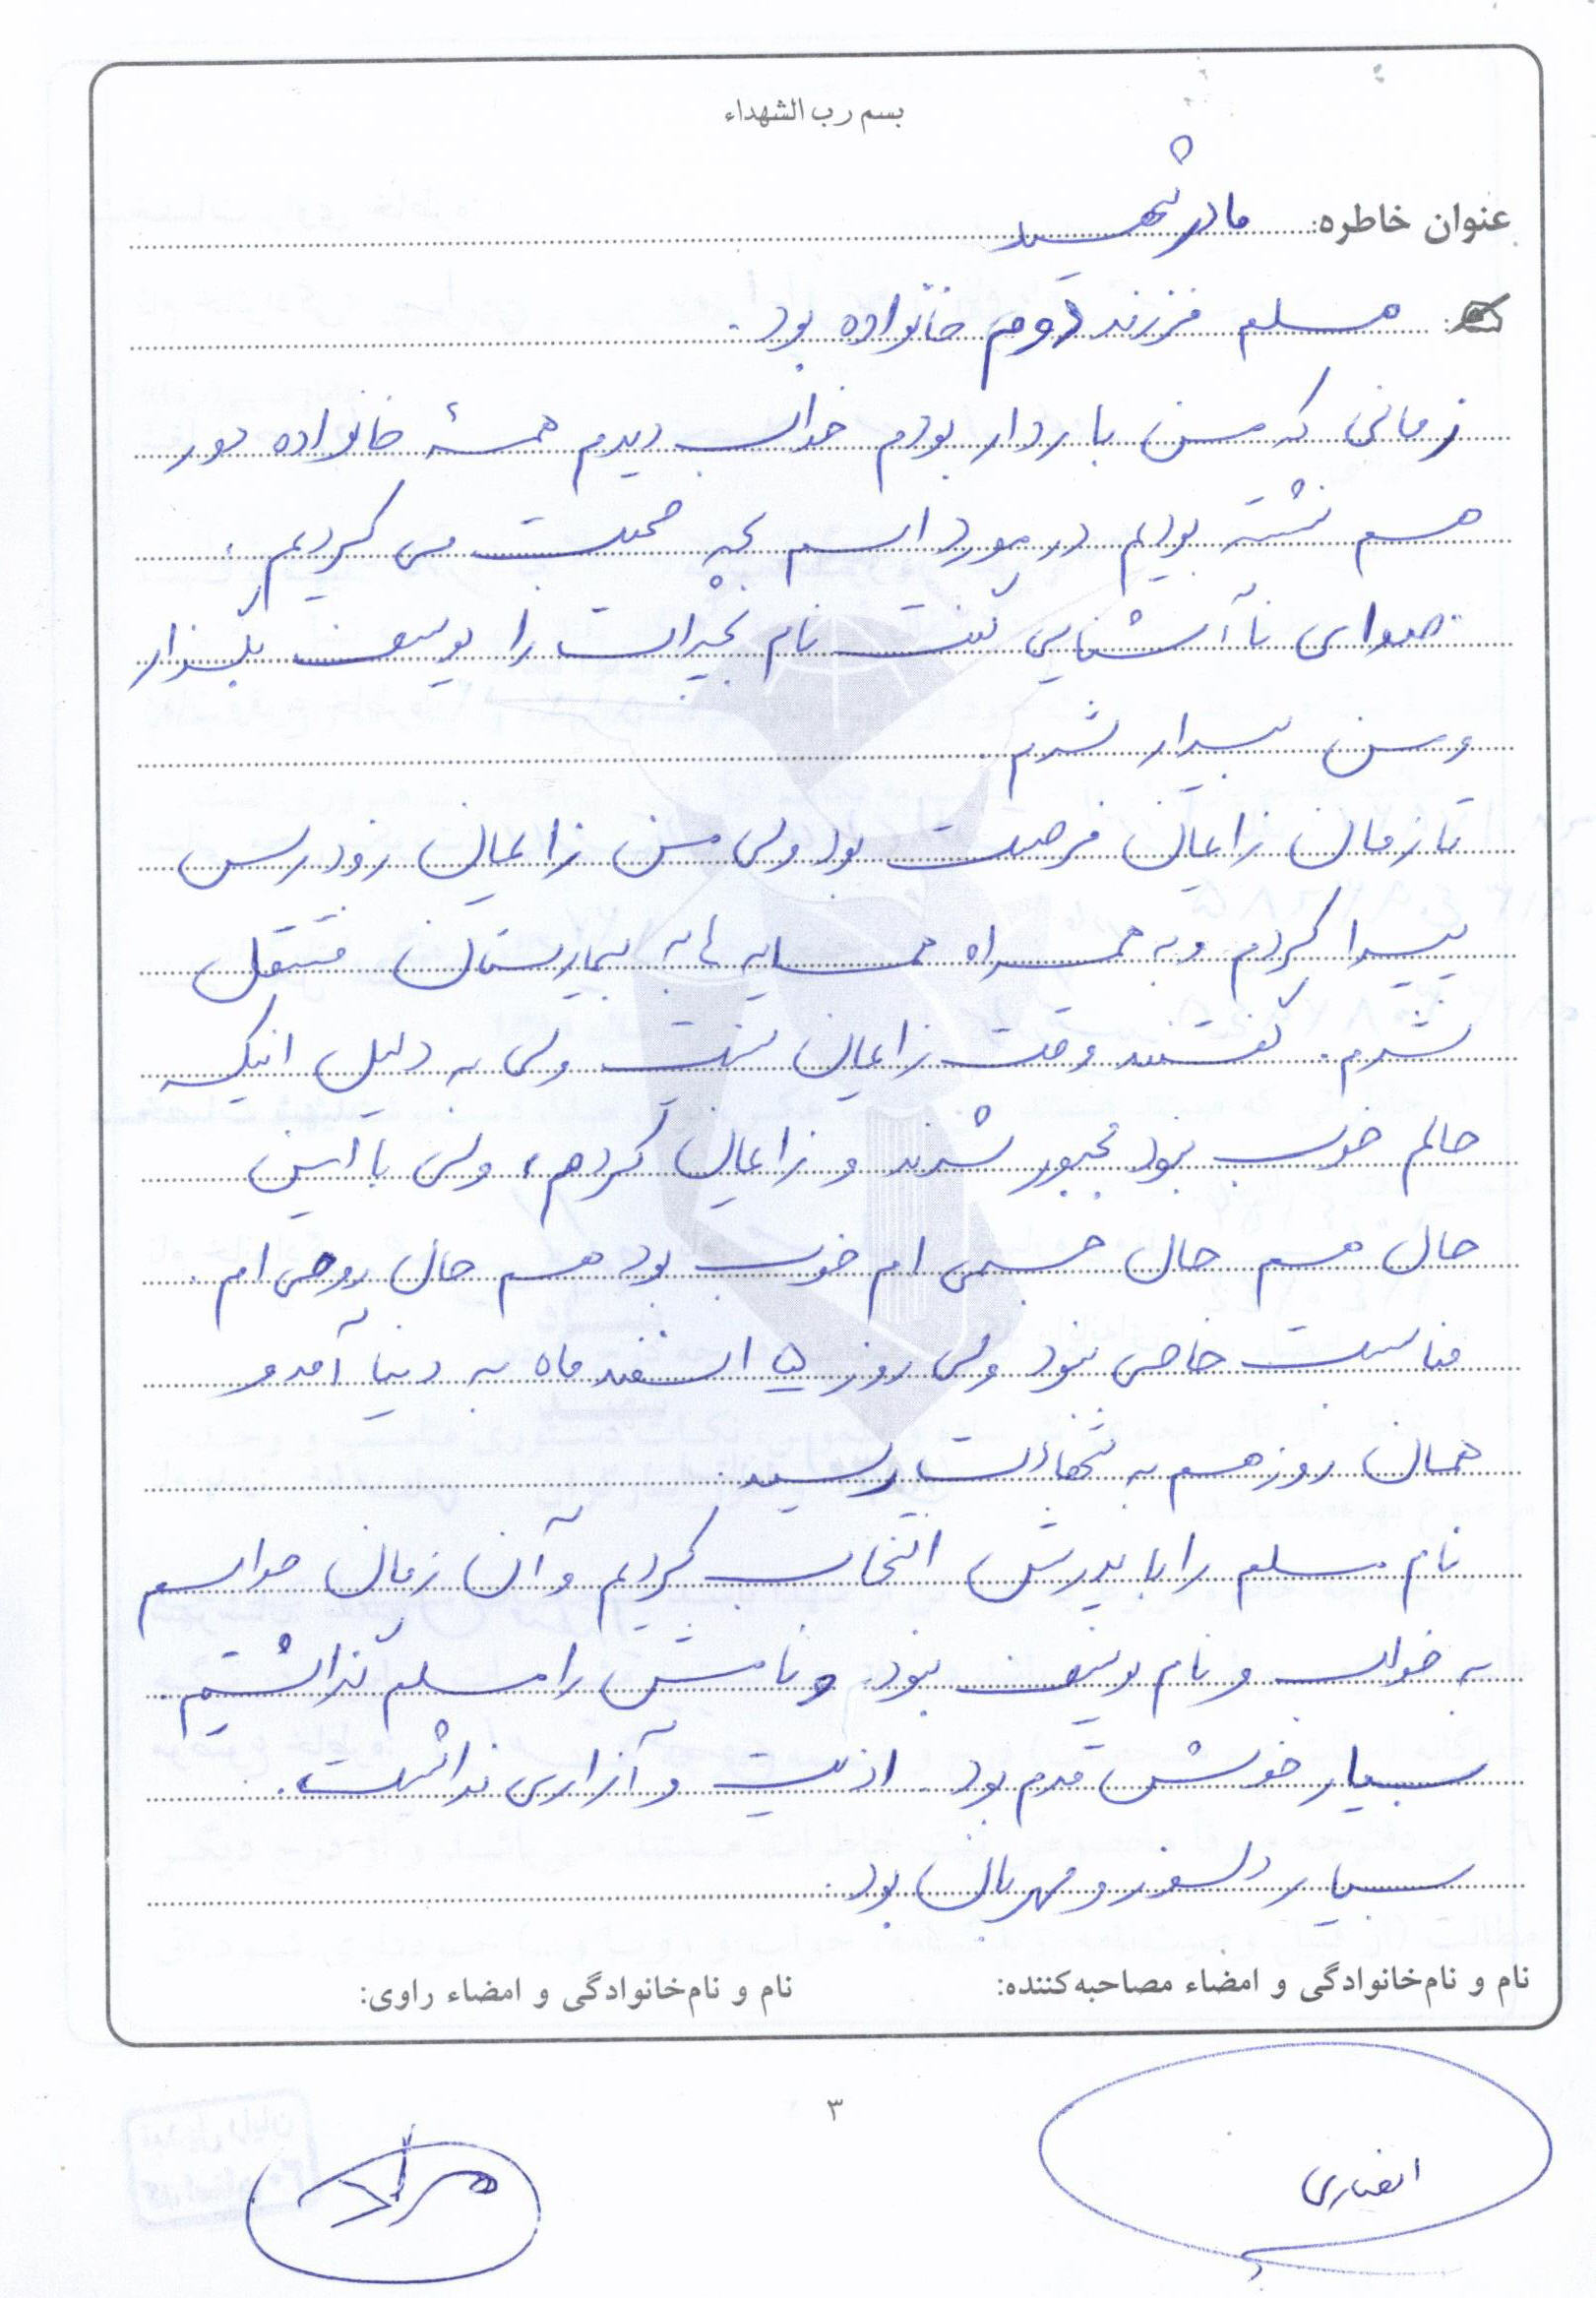 بسم رب الشهداء
عنوان خاطره: مادر شهید
مسلم فرزند دوم خانواده بود.
زمانی که من باردار بودم خواب دیدم همهٔ خانواده دور
هم نشسته بودیم در مورد اسم بچه صحبت می کردیم.
صدای ناآشنایی گفت نام بچه ات را یوسف بگذار
و من بیدار شدم.
تا زمان زایمان فرصت بود ولی من زایمان زودرس
پیدا کردم و به همراه همسایه ها به بیمارستان منتقل
شدم. گفتند وقت زایمان نیست ولی به دلیل اینکه
حالم خوب نبود مجبور شدند و زایمان کردم، ولی با این
حال هم حال جسمی ام خوب بود هم حال روحی ام.
مناسبت خاصی نبود ولی روز ۵ اسفند ماه به دنیا آمد و
همان روز هم به شهادت رسید.
نام مسلم را با پدرش انتخاب کردیم و آن زمان حواسم
به خواب و نام یوسف نبود. و نامش را مسلم گذاشتیم.
بسیار خوش قدم بود. اذیت و آزاری نداشت.
بسیار دلسوز و مهربان بود.
نام و نام‌خانوادگی و امضاء مصاحبه‌کننده: نام و نام‌خانوادگی و امضاء راوی:
۳
انصاری